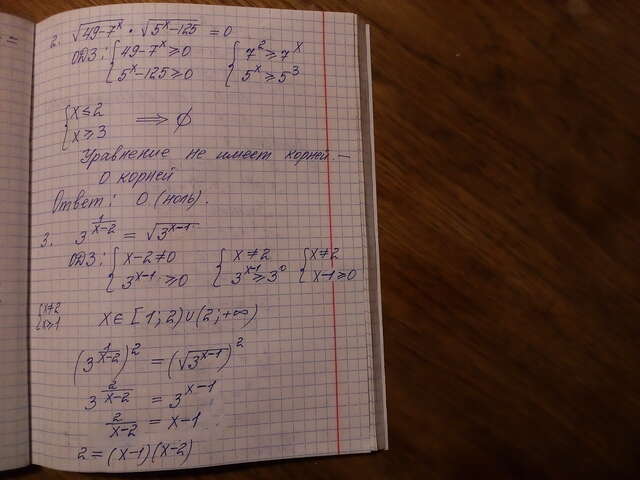 2. √(49-7^x) · √(5^x-125) = 0
ОДЗ: { 49-7^x ≥ 0 { 7^2 ≥ 7^x
5^x-125 ≥ 0 5^x ≥ 5^3
{ x ≤ 2
x ≥ 3 ⟹ ∅
Уравнение не имеет корней —
0 корней
Ответ: 0 (ноль).
3. 3^(1/(x-2)) = √(3^(x-1))
ОДЗ: { x-2 ≠ 0 { x ≠ 2 { x ≠ 2
3^(x-1) ≥ 0 3^(x-1) ≥ 3^0 x-1 ≥ 0
{ x ≠ 2
x ≥ 1 x ∈ [1; 2) ∪ (2; +∞)
(3^(1/(x-2)))^2 = (√(3^(x-1)))^2
3^(2/(x-2)) = 3^(x-1)
2/(x-2) = x-1
2 = (x-1)(x-2)